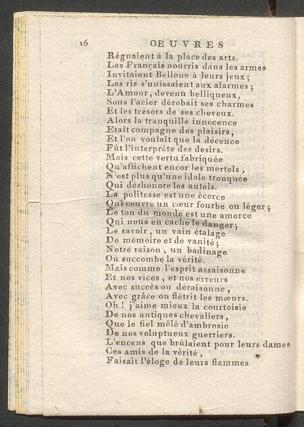 16 OEUVRES
Régnaient à la place des arts.
Les Français nourris dans les armes
Invitaient Bellone à leurs jeux ;
Les ris s'unissaient aux alarmes ;
L'Amour, devenu belliqueux,
Sous l'acier dérobait ses charmes
Et les trésors de ses cheveux.
Alors la tranquille innocence
Etait compagne des plaisirs,
Et l'on voulait que la décence
Fût l'interprète des desirs.
Mais cette vertu fabriquée
Qu'affichent encor les mortels,
N'est plus qu'une idole tronquée
Qui déshonore les autels.
La politesse est une écorce
Qui couvre un cœur fourbe ou léger ;
Le ton du monde est une amorce
Qui nous en cache le danger ;
Le savoir, un vain étalage
De mémoire et de vanité ;
Notre raison, un badinage
Où succombe la vérité.
Mais comme l'esprit assaisonne
Et nos vices, et nos erreurs
Avec succès on déraisonne,
Avec grâce on flétrit les mœurs.
Oh ! j'aime mieux la courtoisie
De nos antiques chevaliers,
Que le fiel mêlé d'ambrosie
De nos voluptueux guerriers.
L'encens que brûlaient pour leurs dames
Ces amis de la vérité,
Faisait l'éloge de leurs flammes